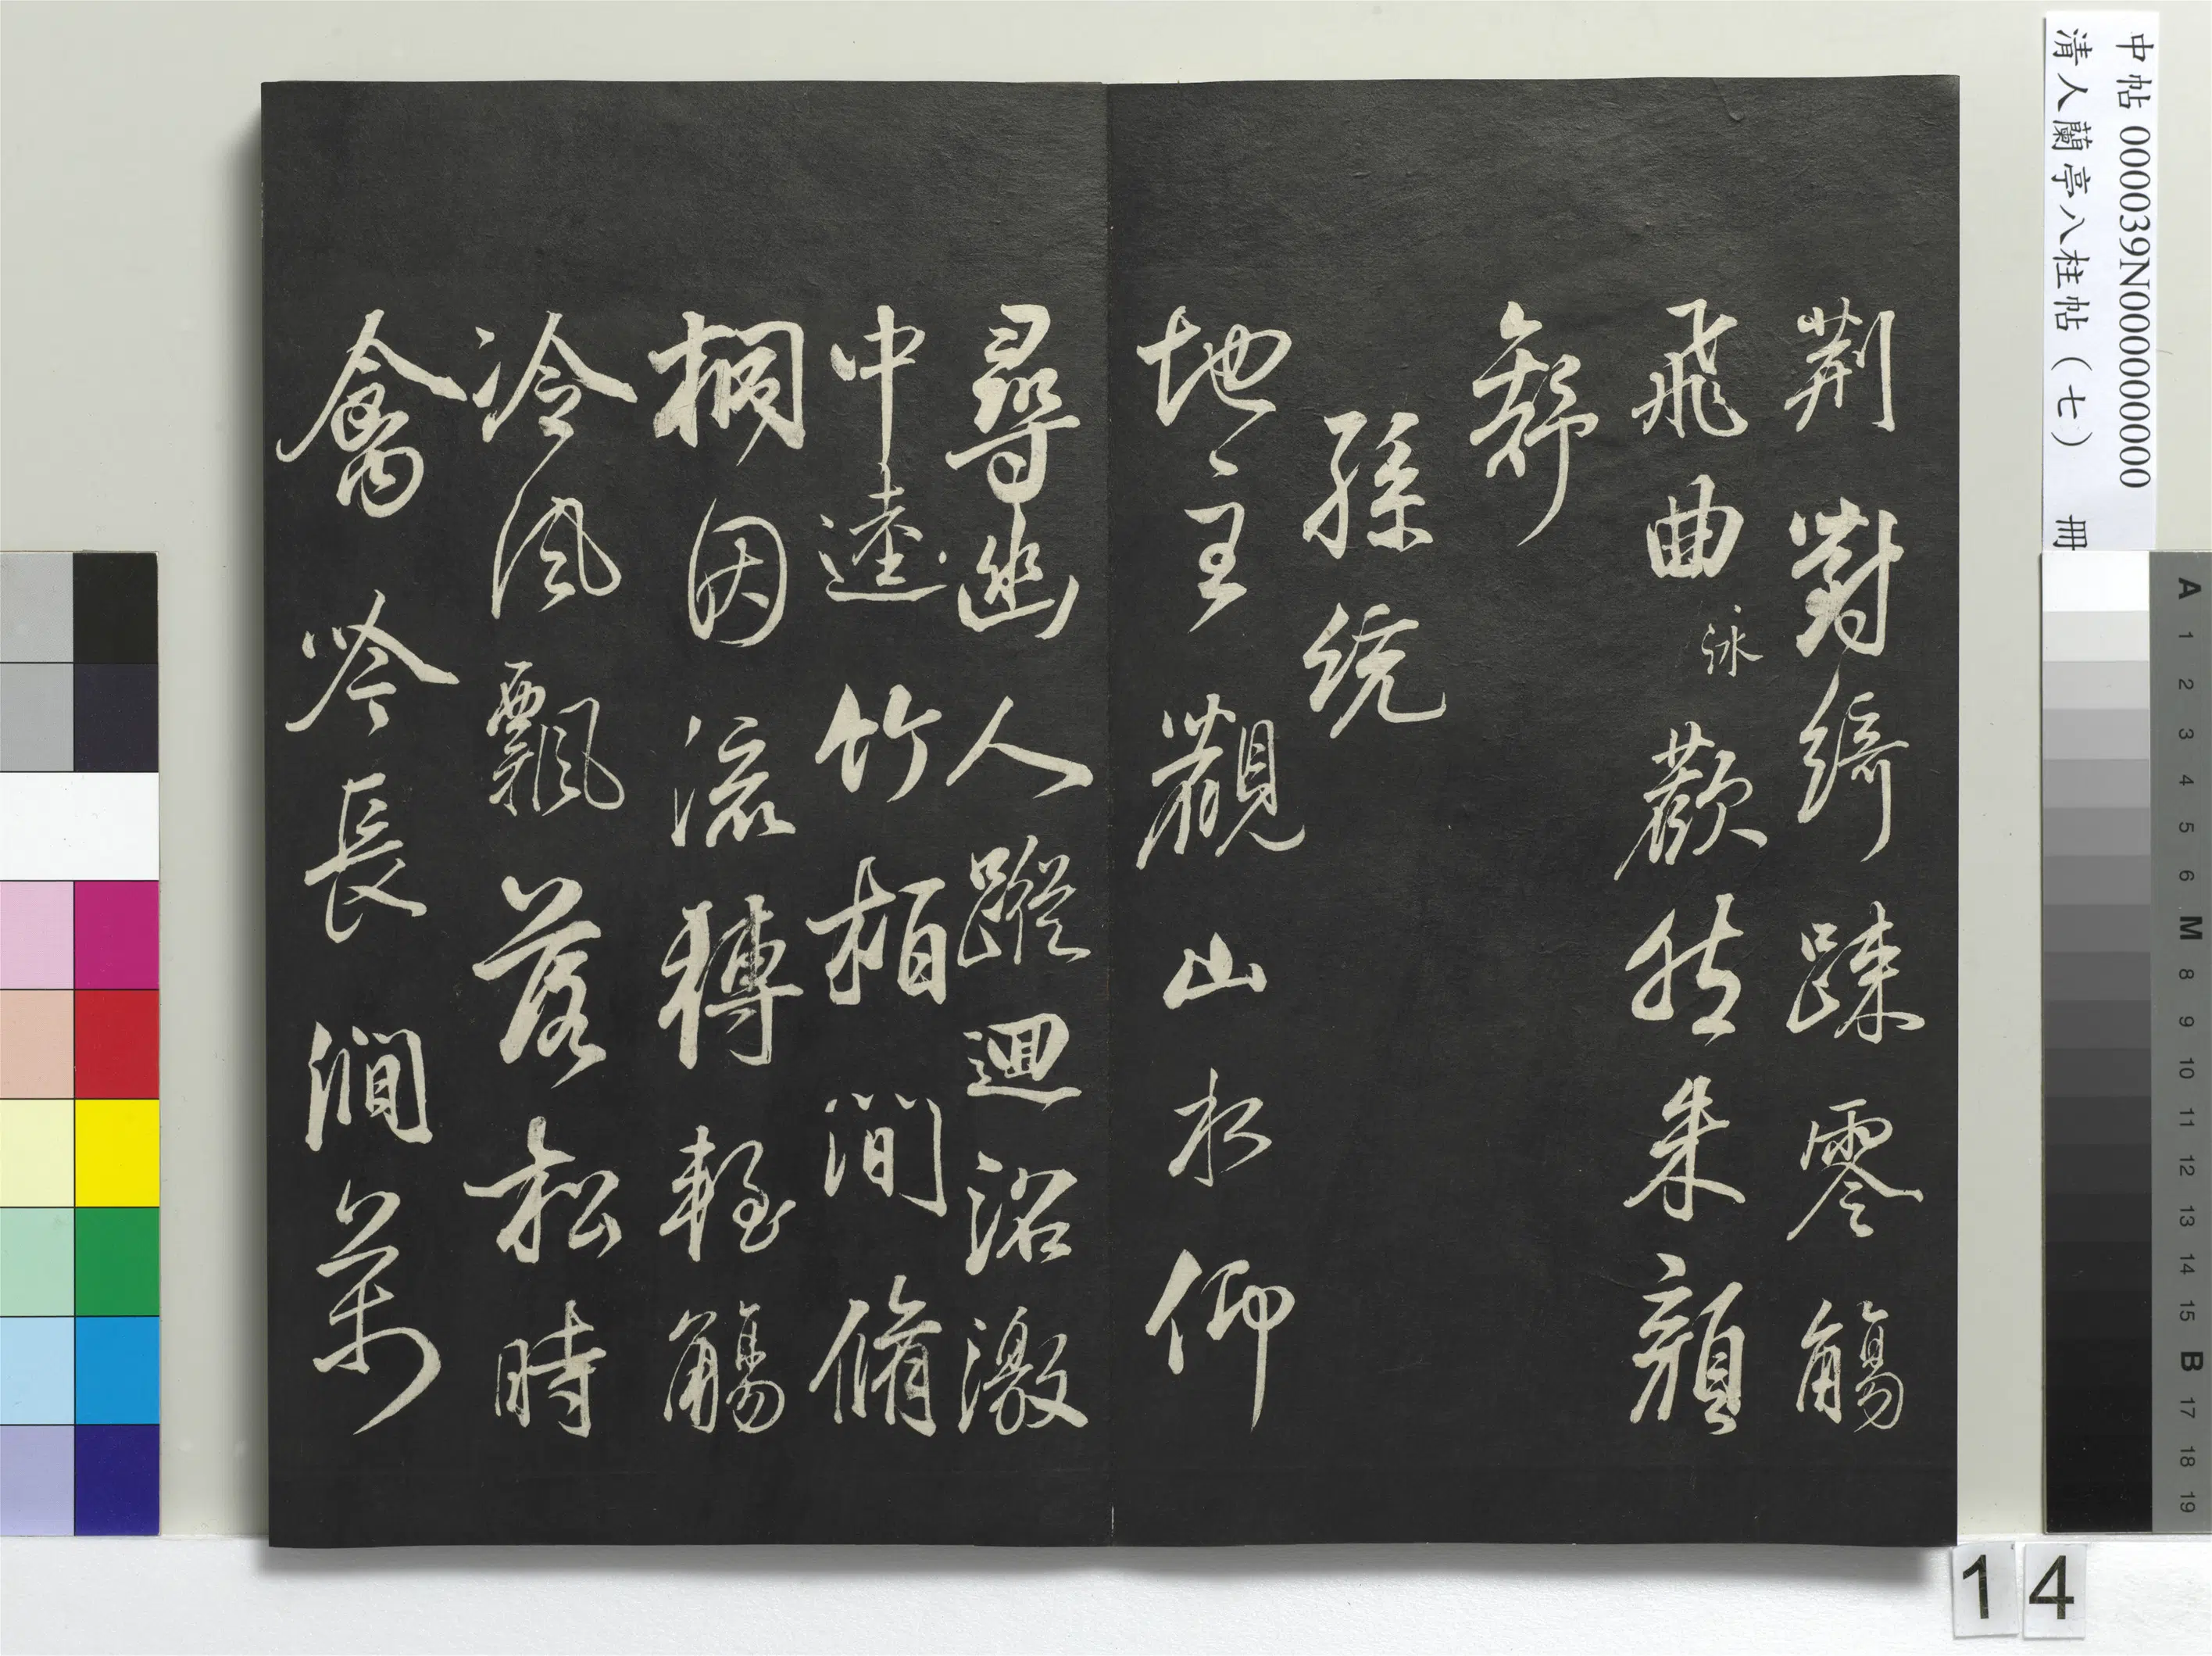 中帖 000039N000000000
清人蘭亭八柱帖（七） 冊
荊對綺踈零觴
飛曲泳歡然朱顏
舒
孫統
地主觀山水仰
尋幽人蹤迴沼激
中逵竹柏澗脩
桐因流轉輕觴
冷風飄落松時
禽吟長澗萬
A 1 2 3 4 5 6 M 8 9 10 11 12 13 14 15 B 17 18 19
14